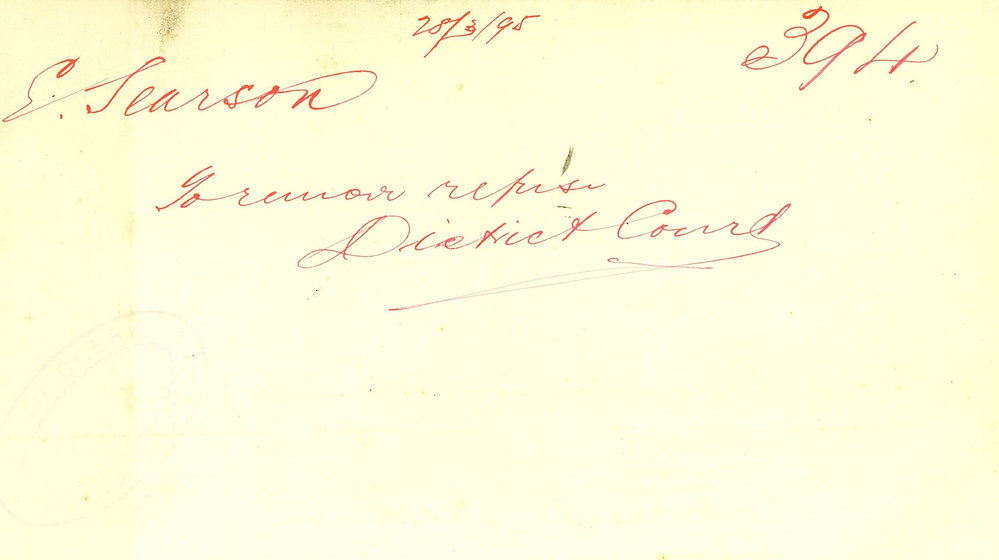 28/3/95
394
E. Searson
To remove refuse
District Court
CLERK